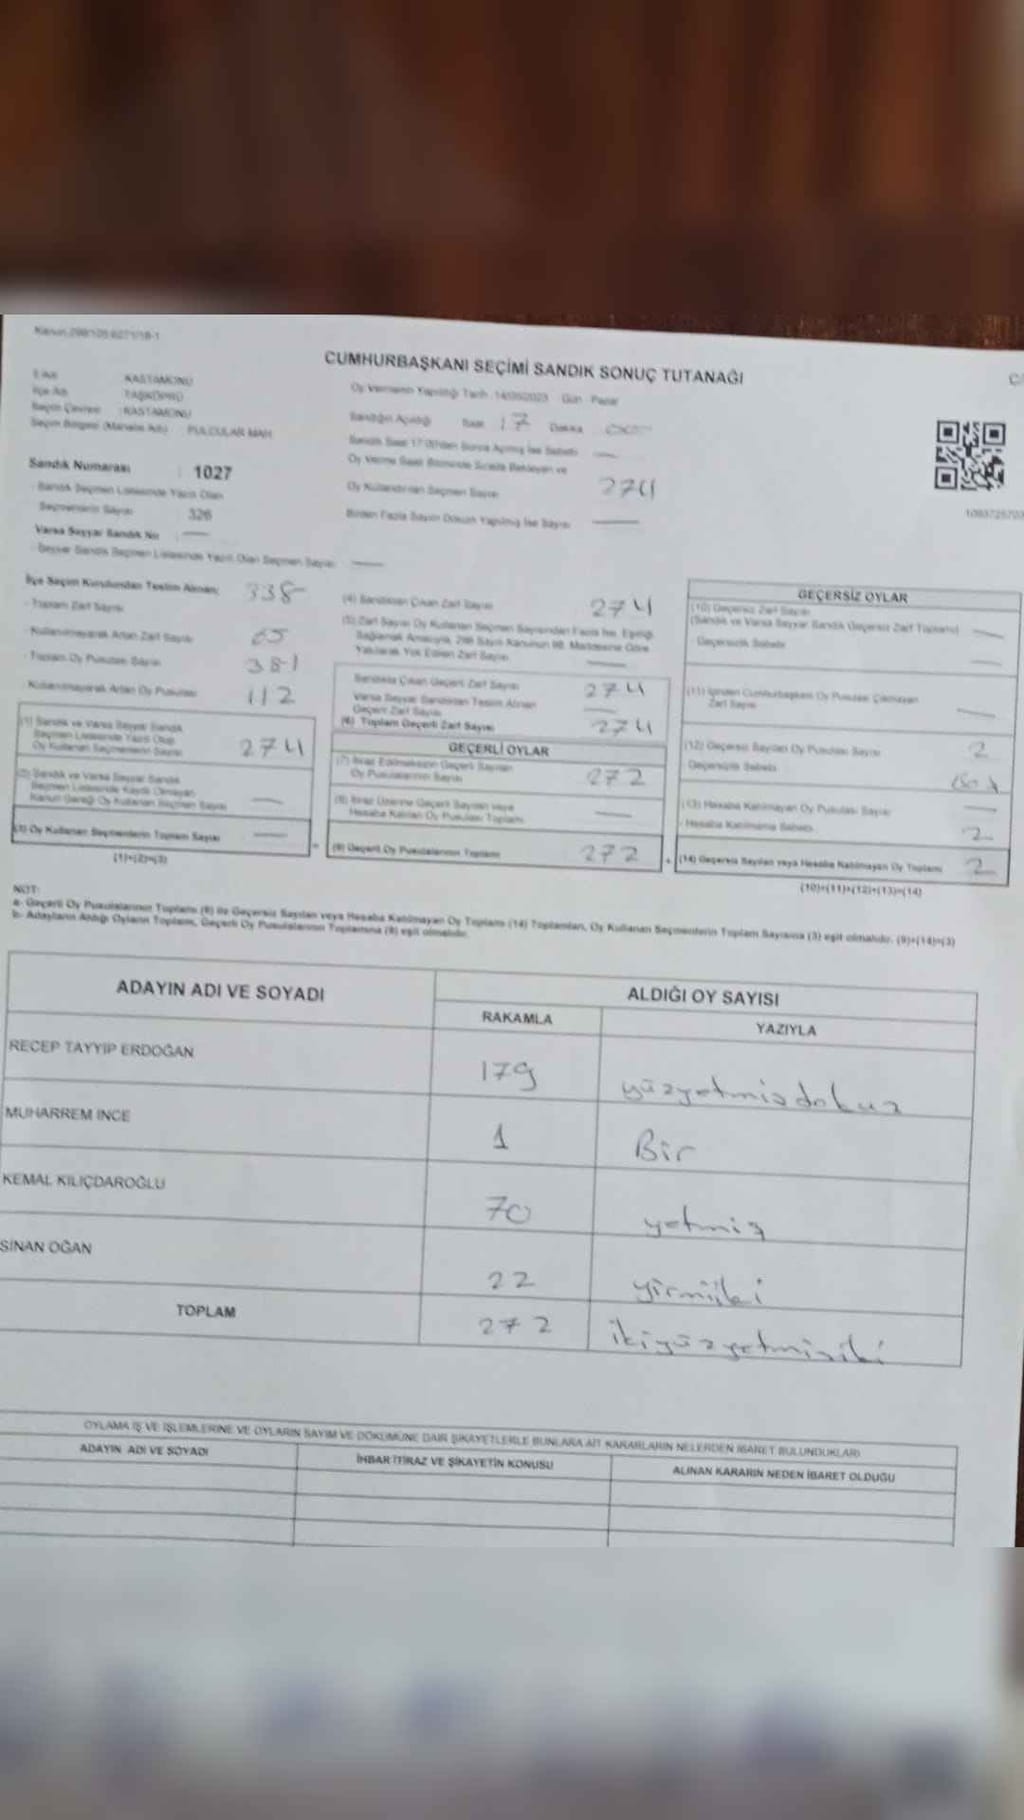 CUMHURBAŞKANI SEÇİMİ SANDIK SONUÇ TUTANAĞI
İl Adı KASTAMONU
İlçe Adı TAŞKÖPRÜ
Seçim Çevresi KASTAMONU
Seçim Bölgesi (Mahalle Adı) PULCULAR MAH.
Oy Vermenin Yapıldığı Tarih 14/05/2023 Gün Pazar
Sandığın Açıldığı Saat 17 Dakika
Sandık Numarası : 1027
Sandık Seçmen Listesinde Yazılı Olan
Seçmenlerin Sayısı 326
Varsa Seyyar Sandık No : —
Seyyar Sandık Seçmen Listesinde Yazılı Olan Seçmen Sayısı —
Oy Kullandırılan Seçmen Sayısı 274
Birden Fazla Sayım Döküm Yapılmış İse Sayısı —
İlçe Seçim Kurulundan Teslim Alınan;
- Toplam Zarf Sayısı 338
- Kullanılmayarak Artan Zarf Sayısı 65
- Toplam Oy Pusulası Sayısı 381
- Kullanılmayarak Artan Oy Pusulası 112
(1) Sandık ve Varsa Seyyar Sandık
Seçmen Listesinde Yazılı Olup
Oy Kullanan Seçmenlerin Sayısı 274
(2) Sandık ve Varsa Seyyar Sandık
Seçmen Listesinde Kaydı Olmayan
Kanun Gereği Oy Kullanan Seçmen Sayısı —
(3) Oy Kullanan Seçmenlerin Toplam Sayısı —
(1)+(2)=(3)
(4) Sandıktan Çıkan Zarf Sayısı 274
(5) Zarf Sayısı Oy Kullanan Seçmen Sayısından Fazla İse, Eşitliği
Sağlamak Amacıyla, 298 Sayılı Kanunun 98. Maddesine Göre
Yakılarak Yok Edilen Zarf Sayısı —
Sandıkta Çıkan Geçerli Zarf Sayısı 274
Varsa Seyyar Sandıktan Teslim Alınan
Geçerli Zarf Sayısı —
(6) Toplam Geçerli Zarf Sayısı 274
GEÇERLİ OYLAR
(7) İtiraz Edilmeksizin Geçerli Sayılan
Oy Pusulalarının Sayısı 272
(8) İtiraz Üzerine Geçerli Sayılan veya
Hesaba Katılan Oy Pusulası Toplamı —
(9) Geçerli Oy Pusulalarının Toplamı 272
GEÇERSİZ OYLAR
(10) Geçersiz Zarf Sayısı
(Sandık ve Varsa Seyyar Sandık Geçersiz Zarf Toplamı) —
Geçersizlik Sebebi —
(11) İçinden Cumhurbaşkanı Oy Pusulası Çıkmayan
Zarf Sayısı —
(12) Geçersiz Sayılan Oy Pusulası Sayısı 2
Geçersizlik Sebebi
(13) Hesaba Katılmayan Oy Pusulası Sayısı —
- Hesaba Katılmama Sebebi 2
(14) Geçersiz Sayılan veya Hesaba Katılmayan Oy Toplamı 2
(10)+(11)+(12)+(13)=(14)
NOT:
a- Geçerli Oy Pusulalarının Toplamı (9) ile Geçersiz Sayılan veya Hesaba Katılmayan Oy Toplamı (14) Toplamları, Oy Kullanan Seçmenlerin Toplam Sayısına (3) eşit olmalıdır. (9)+(14)=(3)
b- Adayların Aldığı Oyların Toplamı, Geçerli Oy Pusulalarının Toplamına (9) eşit olmalıdır.
ADAYIN ADI VE SOYADI
ALDIĞI OY SAYISI
RAKAMLA YAZIYLA
RECEP TAYYİP ERDOĞAN 179 yüzyetmişdokuz
MUHARREM İNCE 1 Bir
KEMAL KILIÇDAROĞLU 70 yetmiş
SİNAN OĞAN 22 yirmiiki
TOPLAM 272 ikiyüzyetmişiki
OYLAMA İŞ VE İŞLEMLERİNE VE OYLARIN SAYIM VE DÖKÜMÜNE DAİR ŞİKAYETLERLE BUNLARA AİT KARARLARIN NELERDEN İBARET BULUNDUKLARI
ADAYIN ADI VE SOYADI
İHBAR İTİRAZ VE ŞİKAYETİN KONUSU
ALINAN KARARIN NEDEN İBARET OLDUĞU